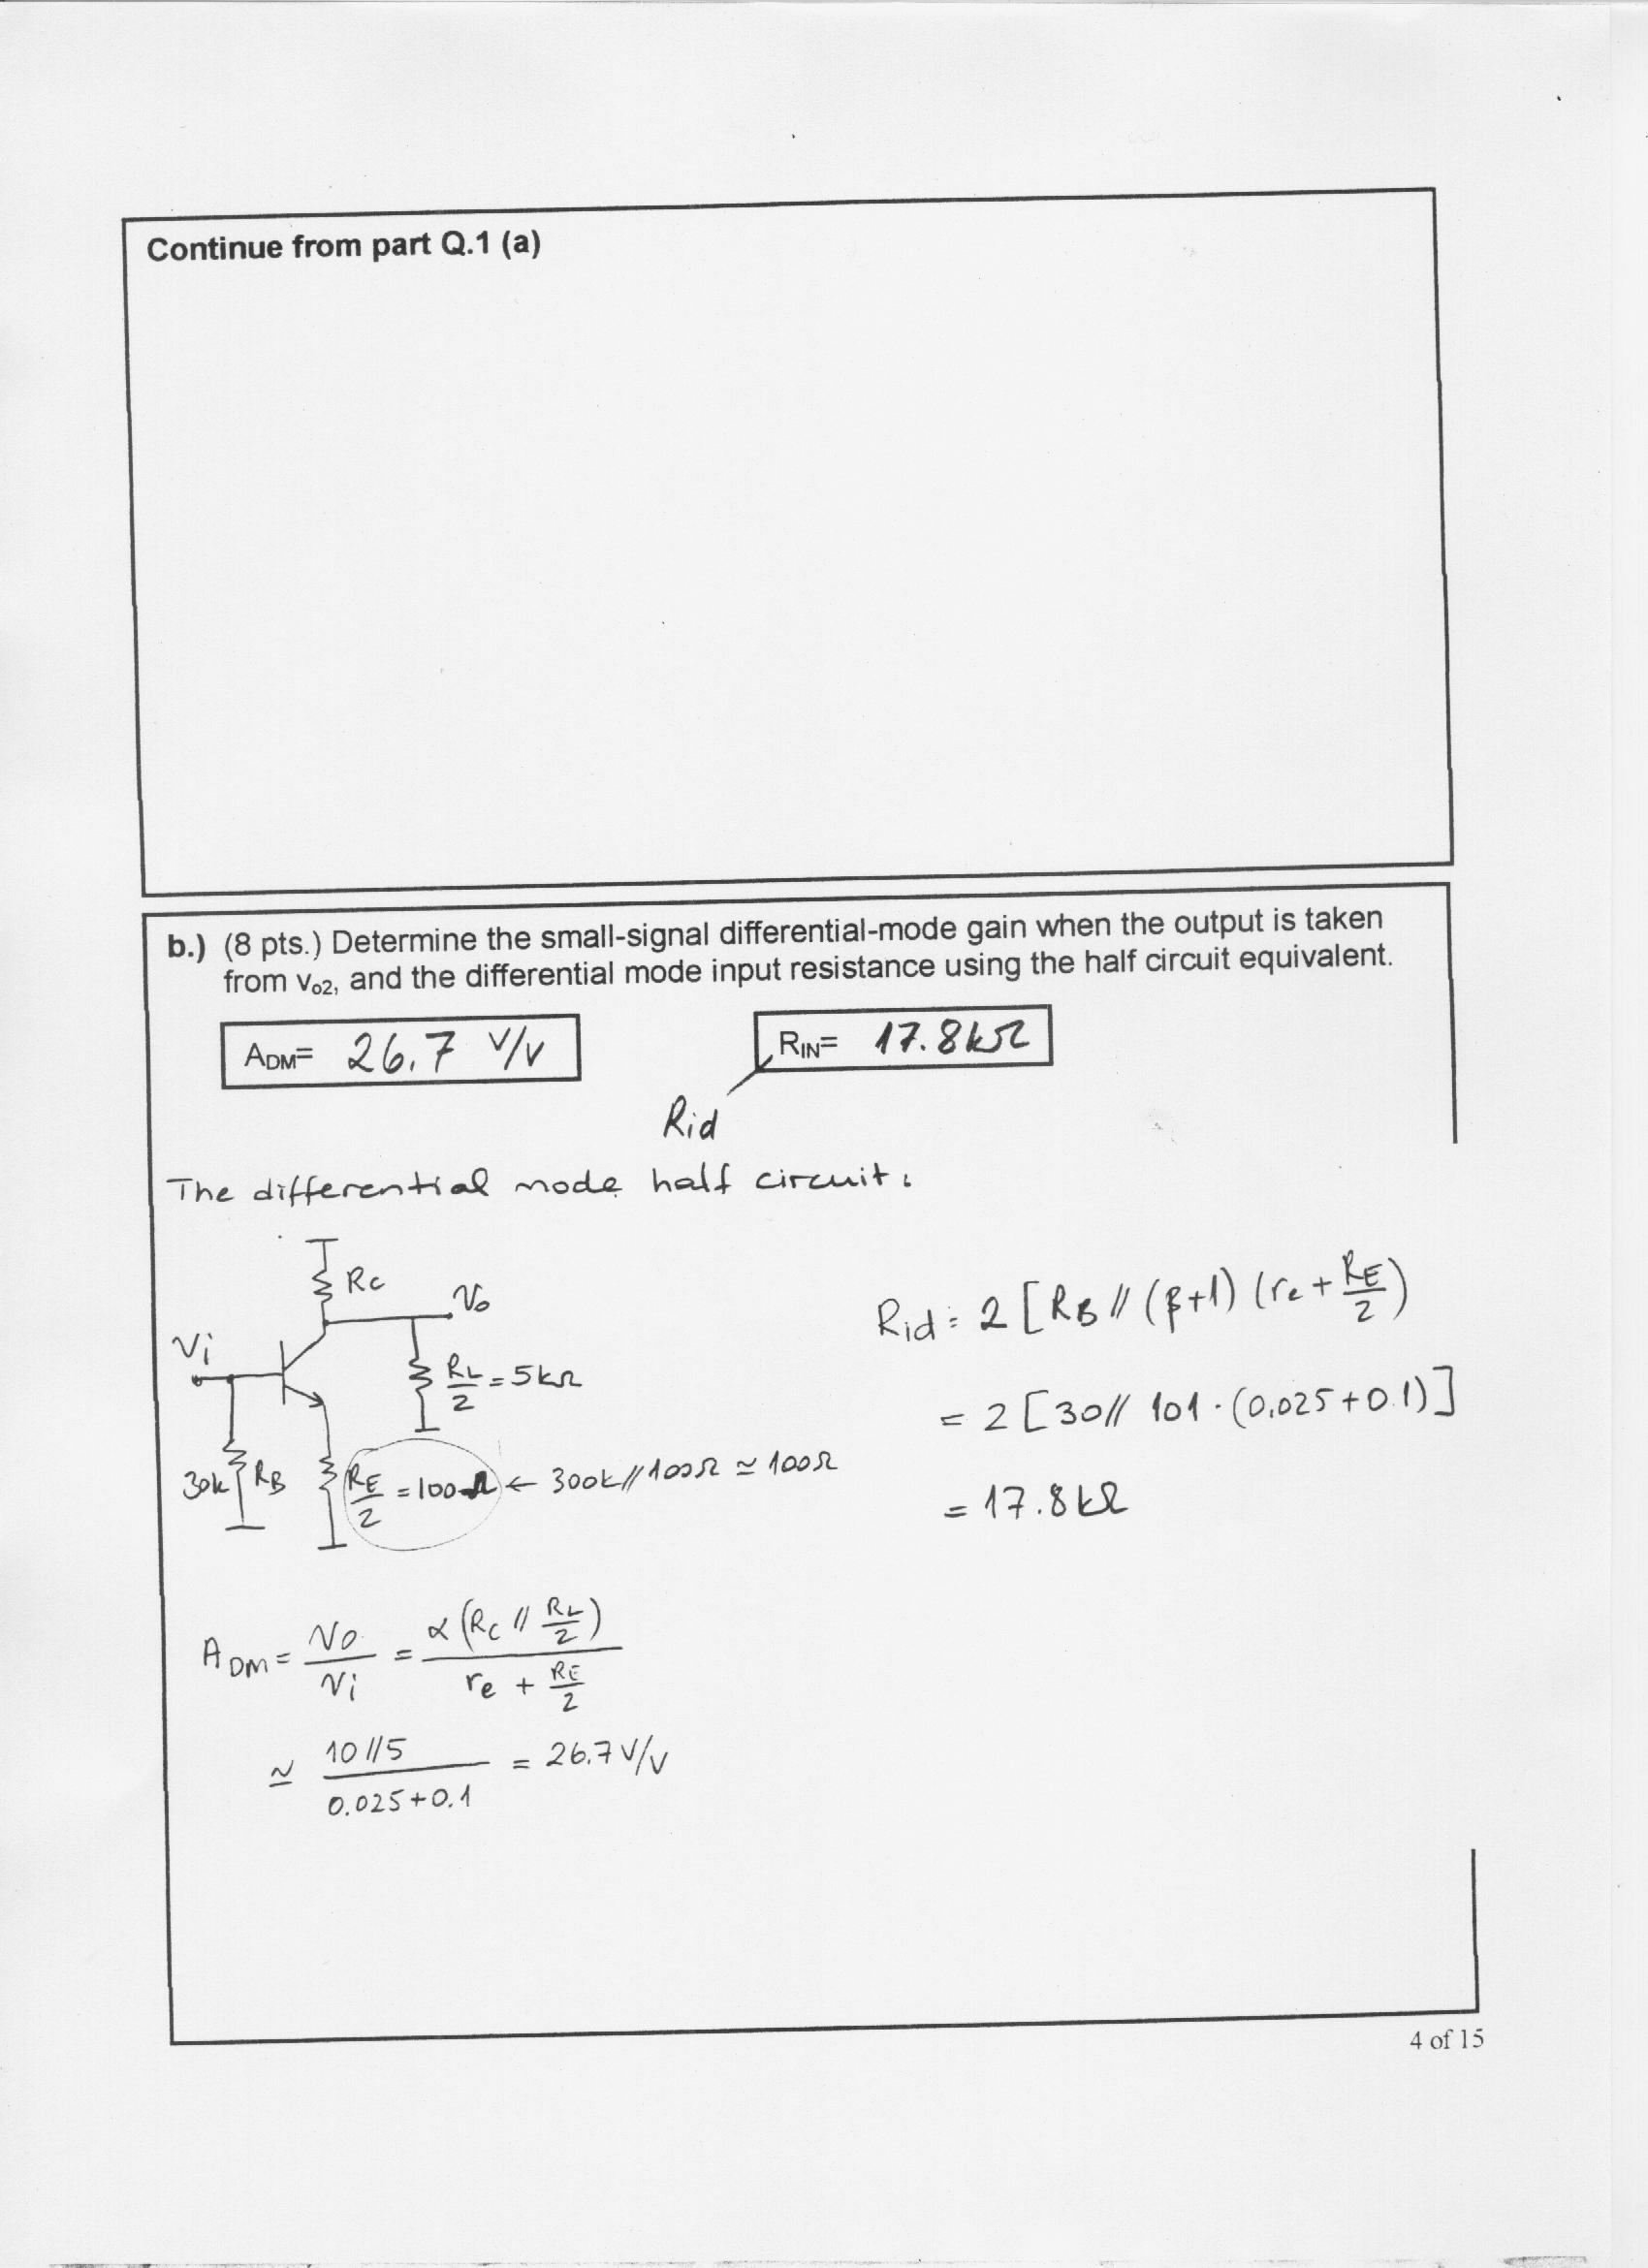 Continue from part Q.1 (a)
b.) (8 pts.) Determine the small-signal differential-mode gain when the output is taken
from vo2, and the differential mode input resistance using the half circuit equivalent.
ADM= 26.7 V/V
RIN= 17.8kΩ
Rid
The differential mode half circuit:
Rc
Vo
Vi
RL/2 = 5kΩ
30k RB
RE/2 = 100Ω ← 300k//100Ω ≃ 100Ω
Rid = 2 [RB // (β+1) (re + RE/2)
= 2 [30// 101 · (0.025+0.1)]
= 17.8kΩ
ADM = Vo/Vi = α (RC // RL/2) / re + RE/2
≃ 10//5 / 0.025+0.1 = 26.7 V/V
4 of 15